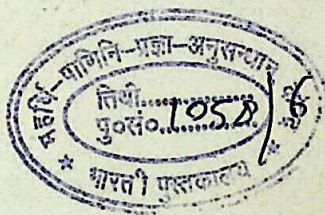 महर्षि-पाणिनि-प्रज्ञा-अनुसन्धान
तिथी............
पु०सं०.1058/6
* भारती पुस्तकालय *